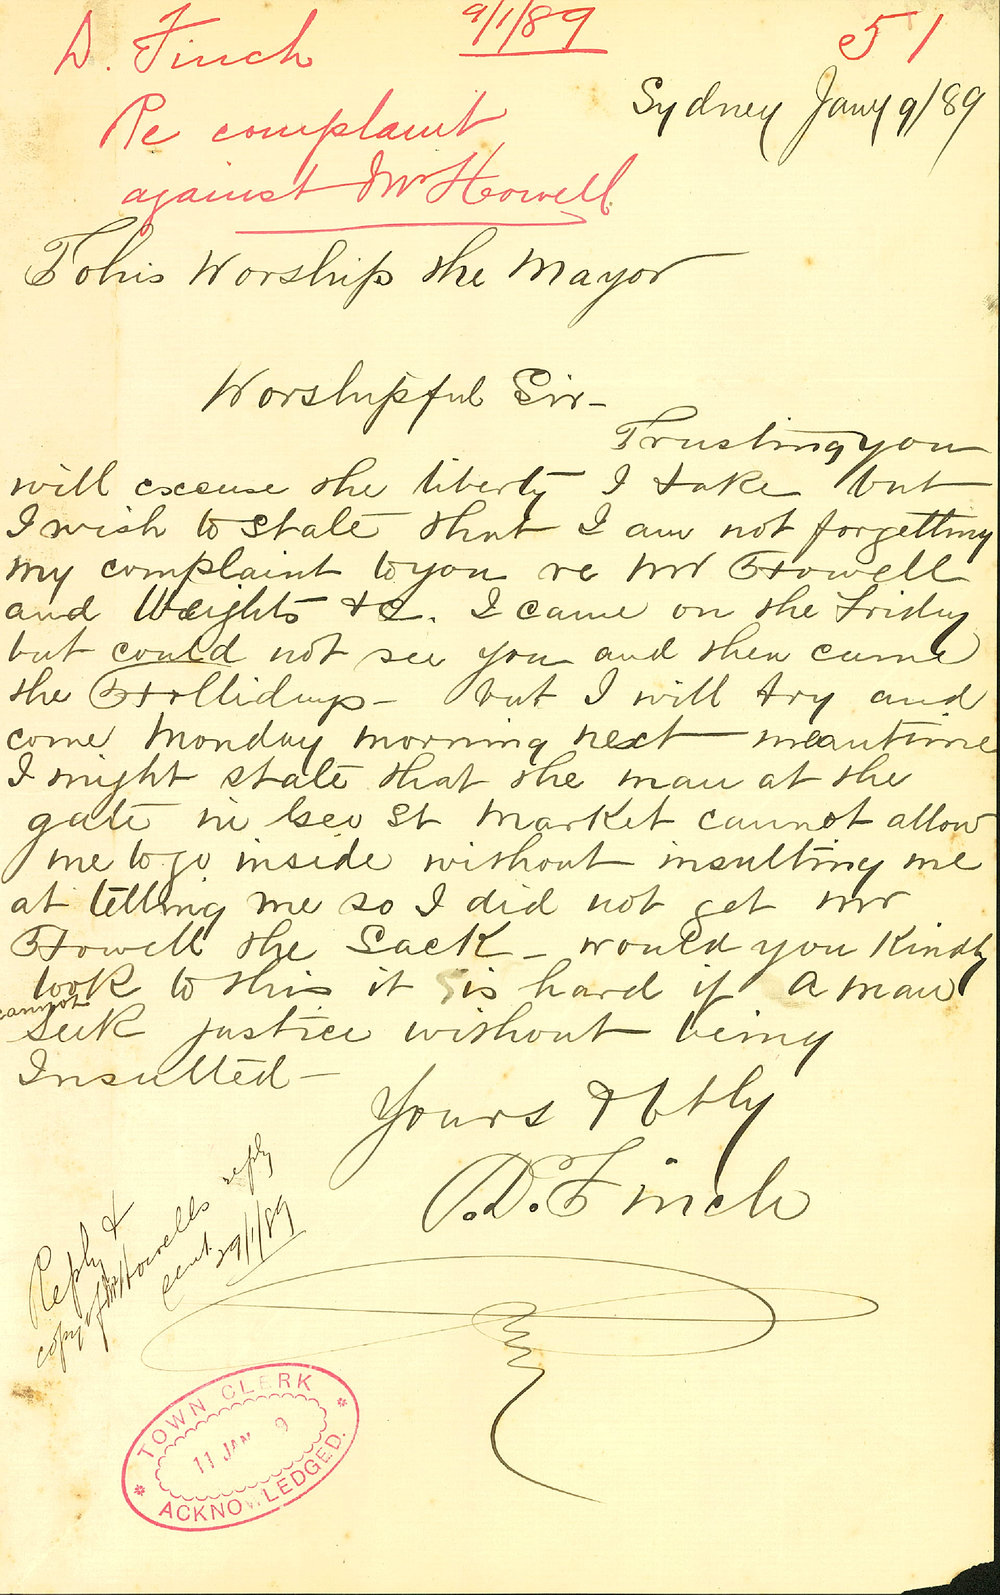 D. Finch 9/1/89 51
Re complaint
against Mr Howell
Sydney Jany 9/89
To his Worship the Mayor
Worshipful Sir -
Trusting you
will excuse the liberty I take but
I wish to state that I am not forgetting
my complaint to you re Mr Howell
and Weights &c. I came on the Friday
but could not see you and then came
the Hollidays - but I will try and
come Monday morning next - meantime
I might state that the man at the
gate in Geo St Market cannot allow
me to go inside without insulting me
at telling me so I did not get Mr
Howell the Sack - would you Kindly
look to this it is hard if a man
cannot
seek justice without being
Insulted -
Yours &
D. Finch
Reply &
copy of Mr Howells reply
sent 29/1/89
TOWN CLERK
11 JAN 9
ACKNOWLEDGED.